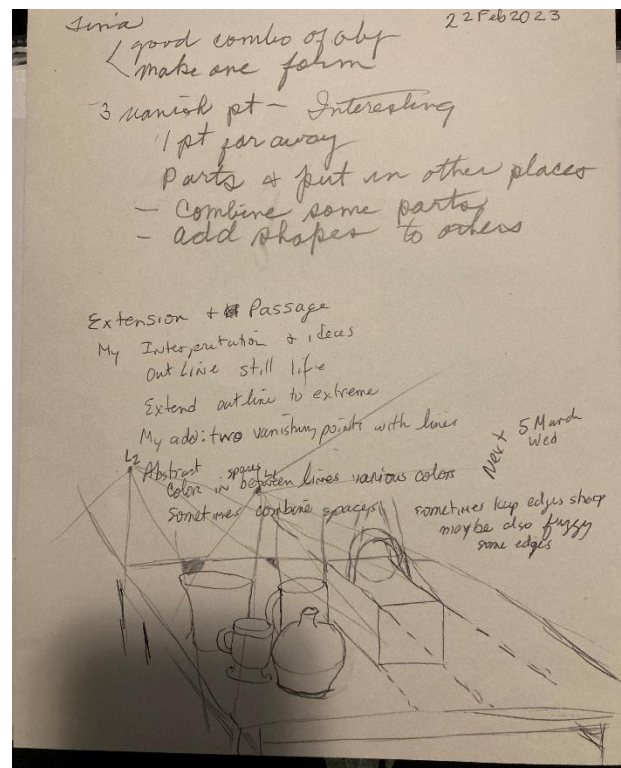 22 Feb 2023
good combo of obj
make one form
3 vanish pt - Interesting
1 pt far away
Parts & put in other places
- Combine some parts
- add shapes to others
Extension + Passage
My Interpretation & ideas
Out Line still life
Extend outline to extreme
My add: two vanishing points with lines
Next 5 March
Wed
L2
Abstract spaces
Color in between lines various colors
Sometimes combine spaces
sometimes keep edges sharp
maybe also fuzzy
some edges